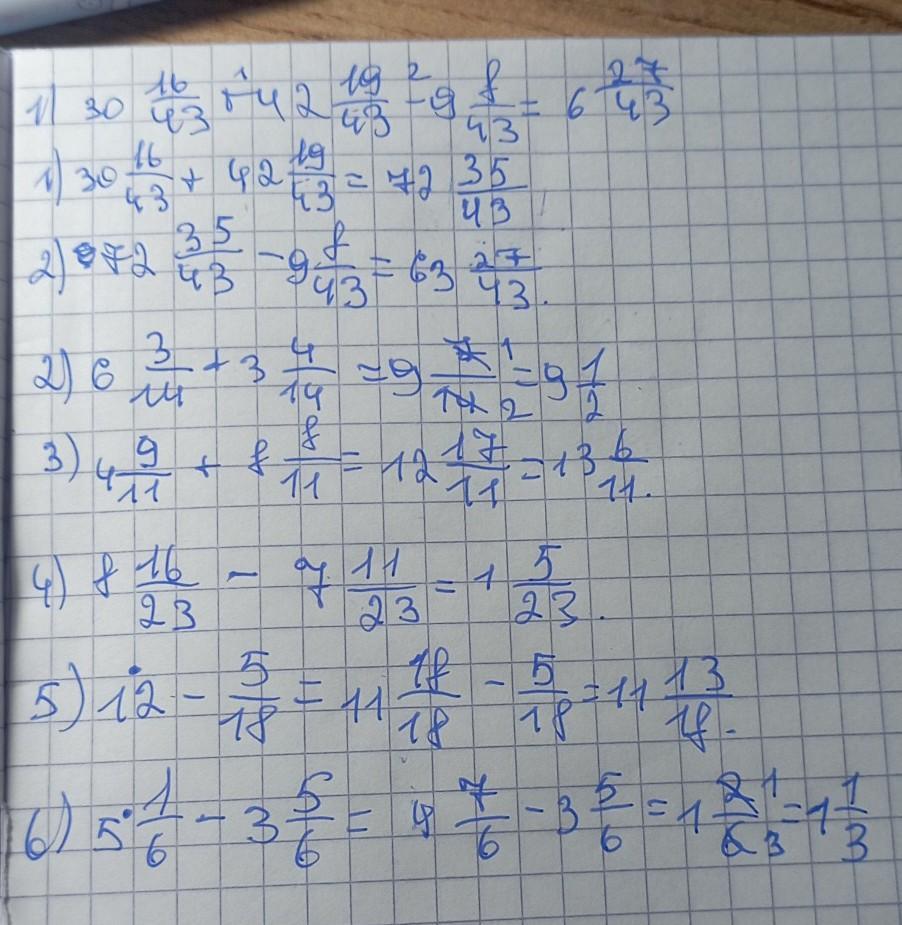 1) 30 16/43 +¹ 42 19/43 -² 9 8/43 = 6 27/43
1) 30 16/43 + 42 19/43 = 72 35/43
2) 72 35/43 - 9 8/43 = 63 27/43.
2) 6 3/14 + 3 4/14 = 9 7/14 1/2 = 9 1/2
3) 4 9/11 + 8 8/11 = 12 17/11 = 13 6/11.
4) 8 16/23 - 7 11/23 = 1 5/23.
5) 12 - 5/18 = 11 18/18 - 5/18 = 11 13/18.
6) 5 1/6 - 3 5/6 = 4 7/6 - 3 5/6 = 1 2/6 1/3 = 1 1/3